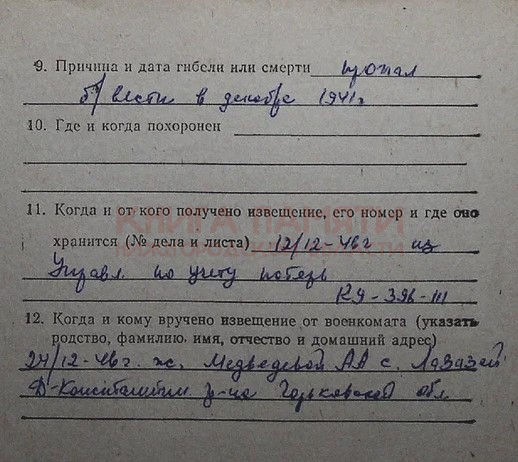 9. Причина и дата гибели или смерти пропал
б/вести в декабре 1941г
10. Где и когда похоронен
11. Когда и от кого получено извещение, его номер и где оно
КНИГА ПАМЯТИ
хранится (№ дела и листа) 12/12-46г из
НИЖЕГОРОДСКОЙ ОБЛАСТИ
Управл. по учету потерь
КЯ-396-III
12. Когда и кому вручено извещение от военкомата (указать
родство, фамилию, имя, отчество и домашний адрес)
24/12-46г. ж. Медведевой АА с.
Д-Константин р-на Горьковской обл